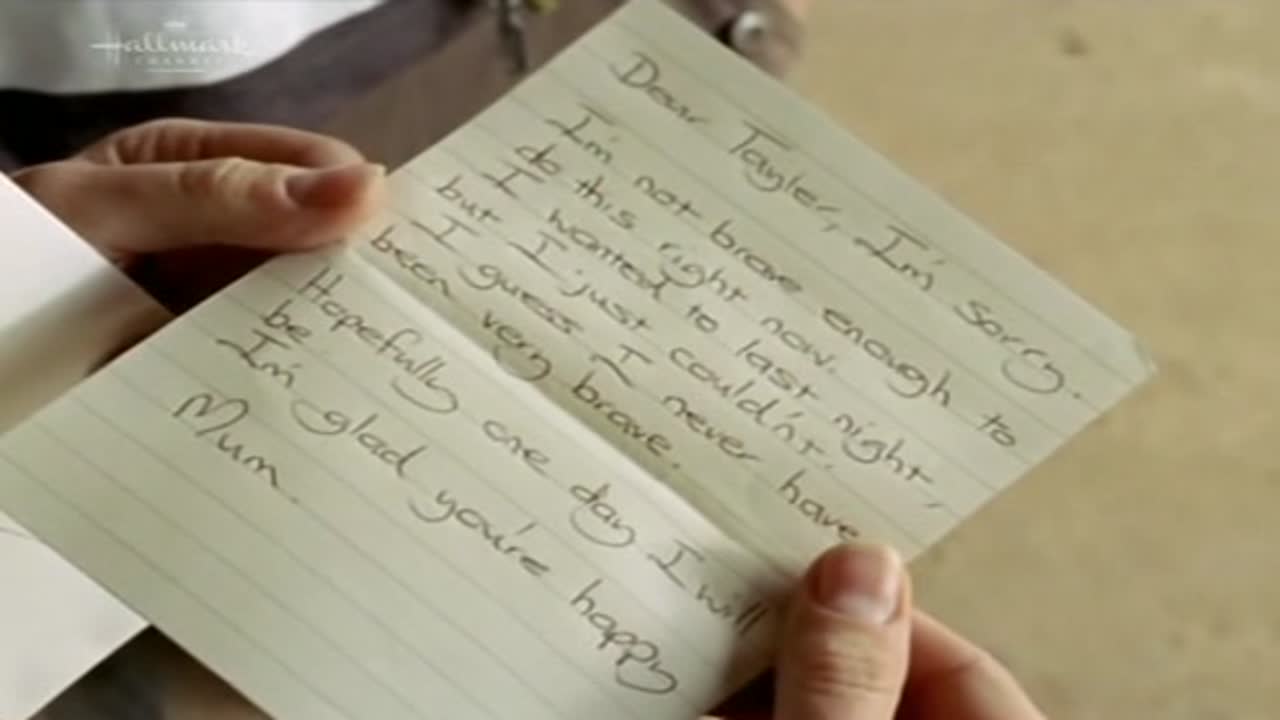 Hallmark
CHANNEL
Dear Tayler, I'm sorry.
I'm not brave enough to
do this right now.
I wanted to last night,
but I just couldn't.
I guess I never have
been very brave.
Hopefully one day I will
be.
I'm glad you're happy
Mum.